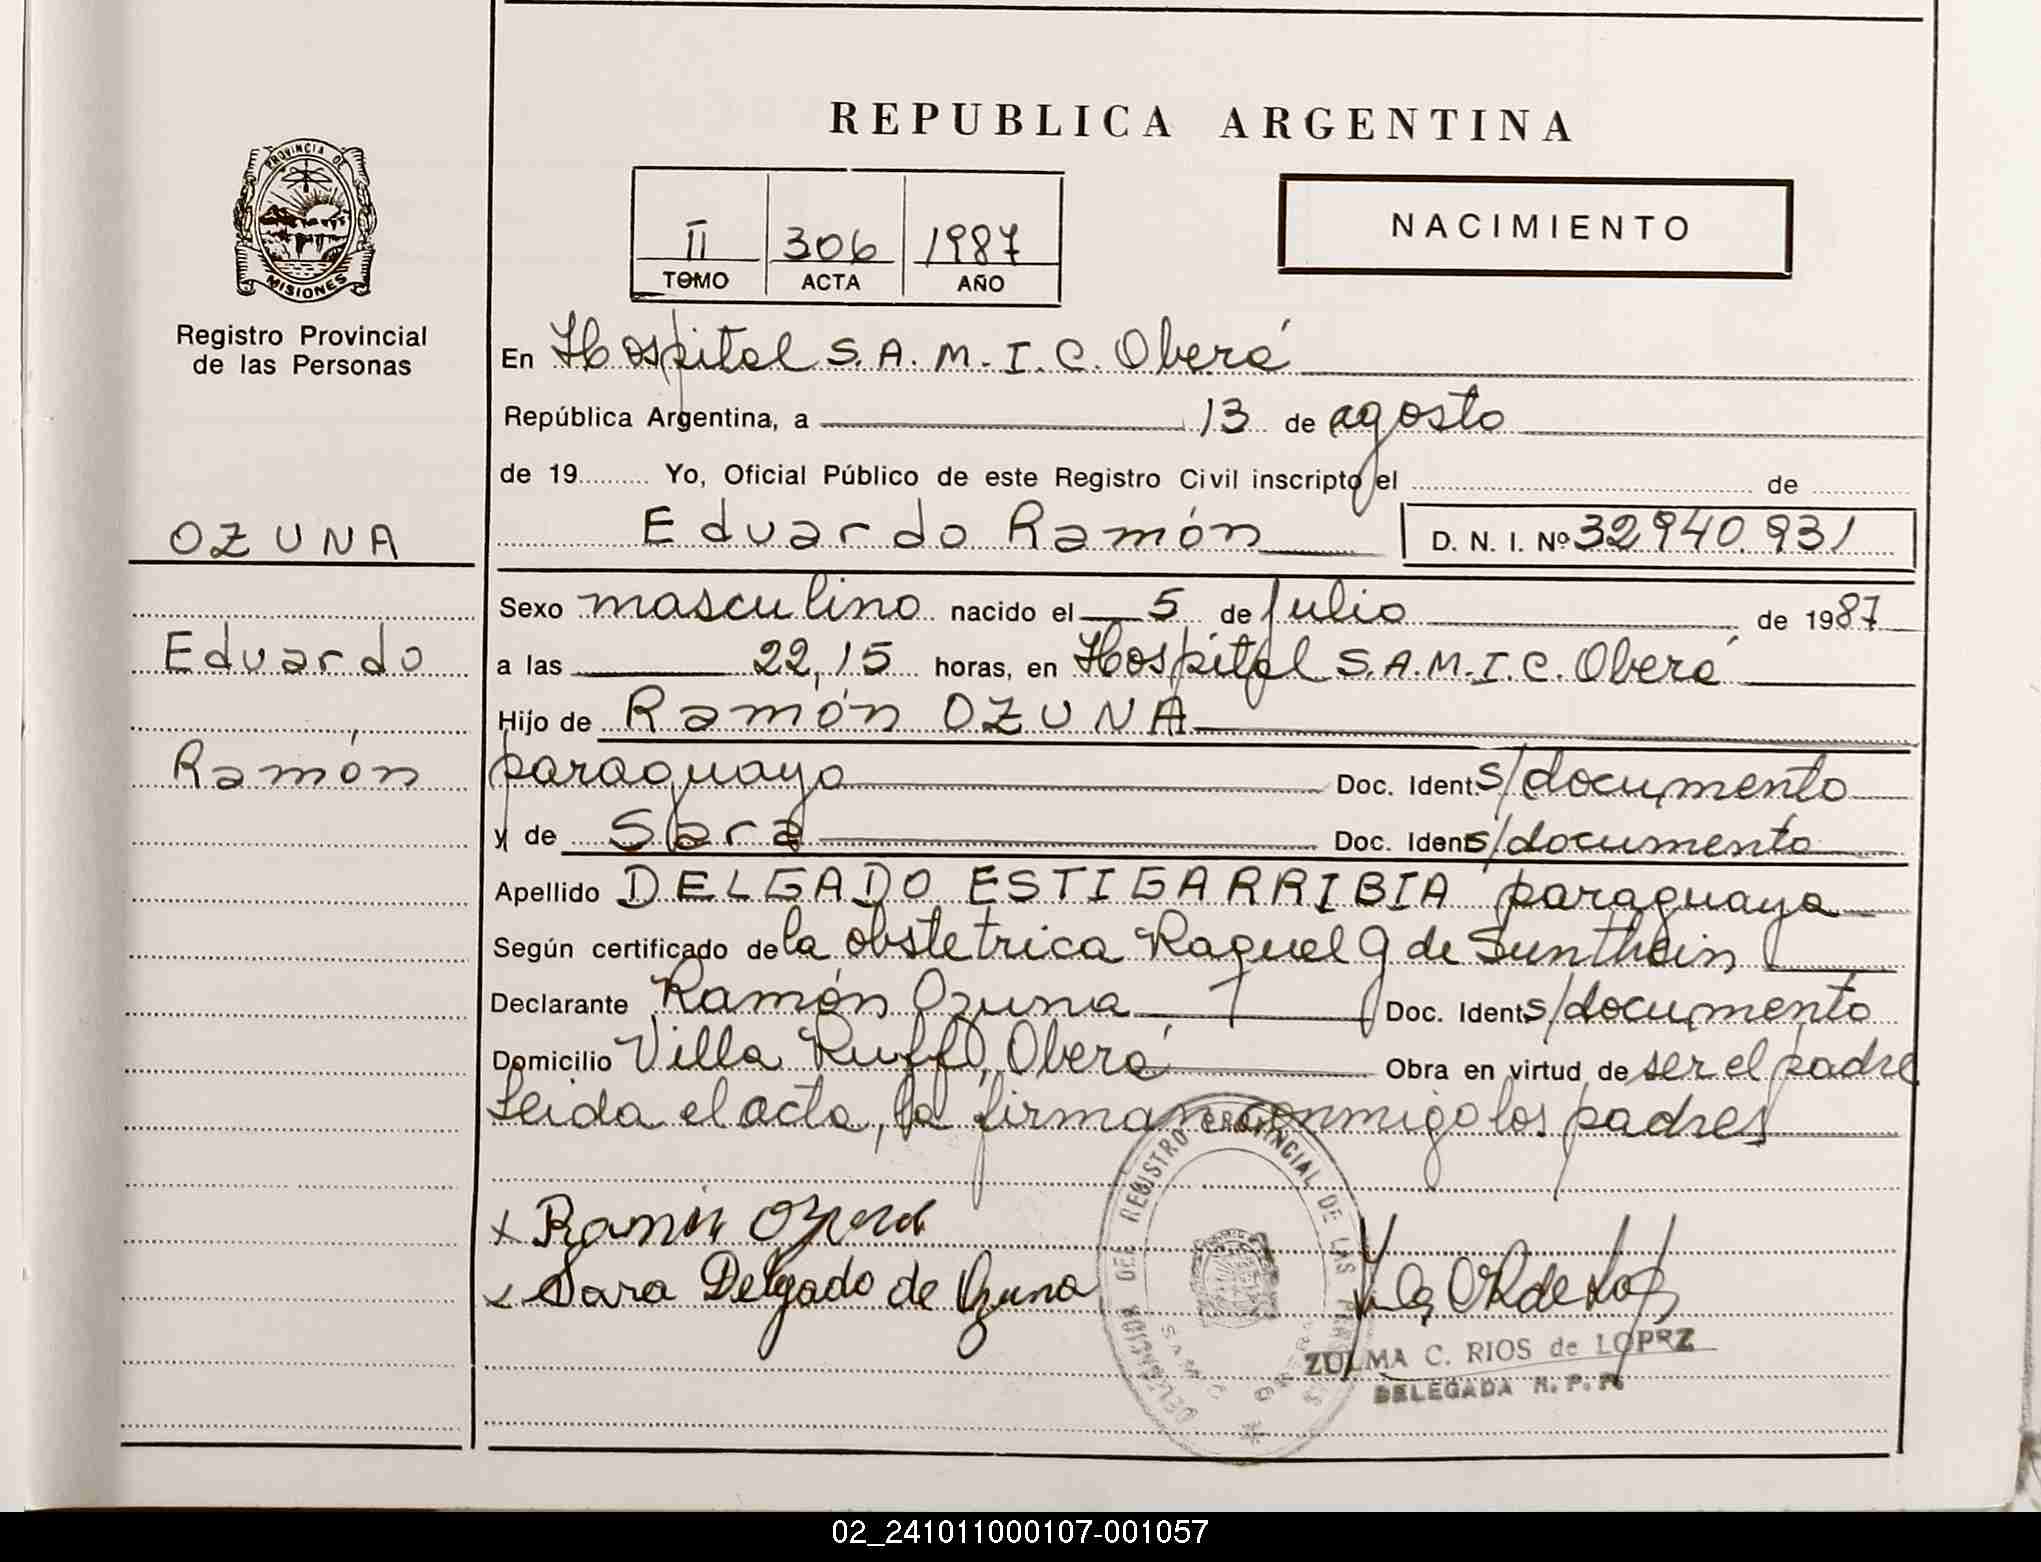 REPUBLICA ARGENTINA
PROVINCIA DE
MISIONES
Registro Provincial
de las Personas
II 306 1987
TOMO ACTA AÑO
NACIMIENTO
En Hospital S.A.M.I.C. Oberá
República Argentina, a 13 de agosto
de 19 Yo, Oficial Público de este Registro Civil inscripto el de
OZUNA
Eduardo
Ramón
Eduardo Ramón D. N. I. Nº 32940.931
Sexo masculino nacido el 5 de Julio de 1987
a las 22,15 horas, en Hospital S.A.M.I.C. Oberá
Hijo de Ramón OZUNA
paraguayo Doc. Ident. s/documento
y de Sara Doc. Ident. s/documento
Apellido DELGADO ESTIGARRIBIA paraguaya
Según certificado de la obstetrica Raquel G de Sunthein
Declarante Ramón Ozuna Doc. Ident. s/documento
Domicilio Villa Ruff, Oberá Obra en virtud de ser el padre
Leida el acta, la firman conmigo los padres
x Ramón Ozuna
x Sara Delgado de Ozuna
DEL REGISTRO PROVINCIAL DE LAS
ZULMA C. RIOS de LOPRZ
DELEGADA R. P. P.
02_241011000107-001057